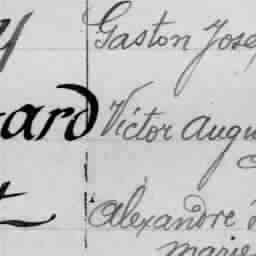 y Gaston Jose
ard Victor Augu
t Alexandre
marie